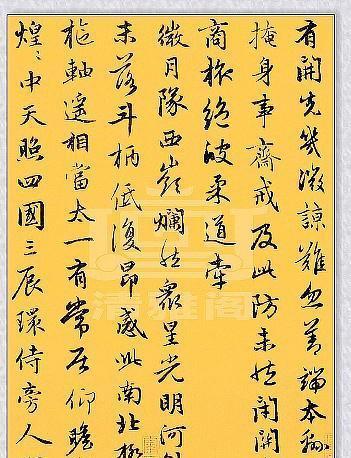 有開先幾微諒難忽善端本綿
掩身事齋戒及此防未然閉關
商旅絕彼柔道牽
微月隊西嶺爛然眾星光明河
未落斗柄低復昂感此南北極
樞軸遙相當太一有常居仰瞻
煌〻中天照四國三辰環侍旁人
清雅阁